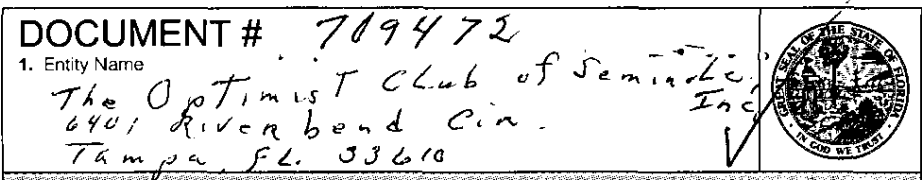 DOCUMENT # 709472
1. Entity Name
The Optimist Club of Seminole, Inc
6401 Riverbend Cir.
Tampa, FL. 33610
GREAT SEAL OF THE STATE OF FLORIDA
IN GOD WE TRUST